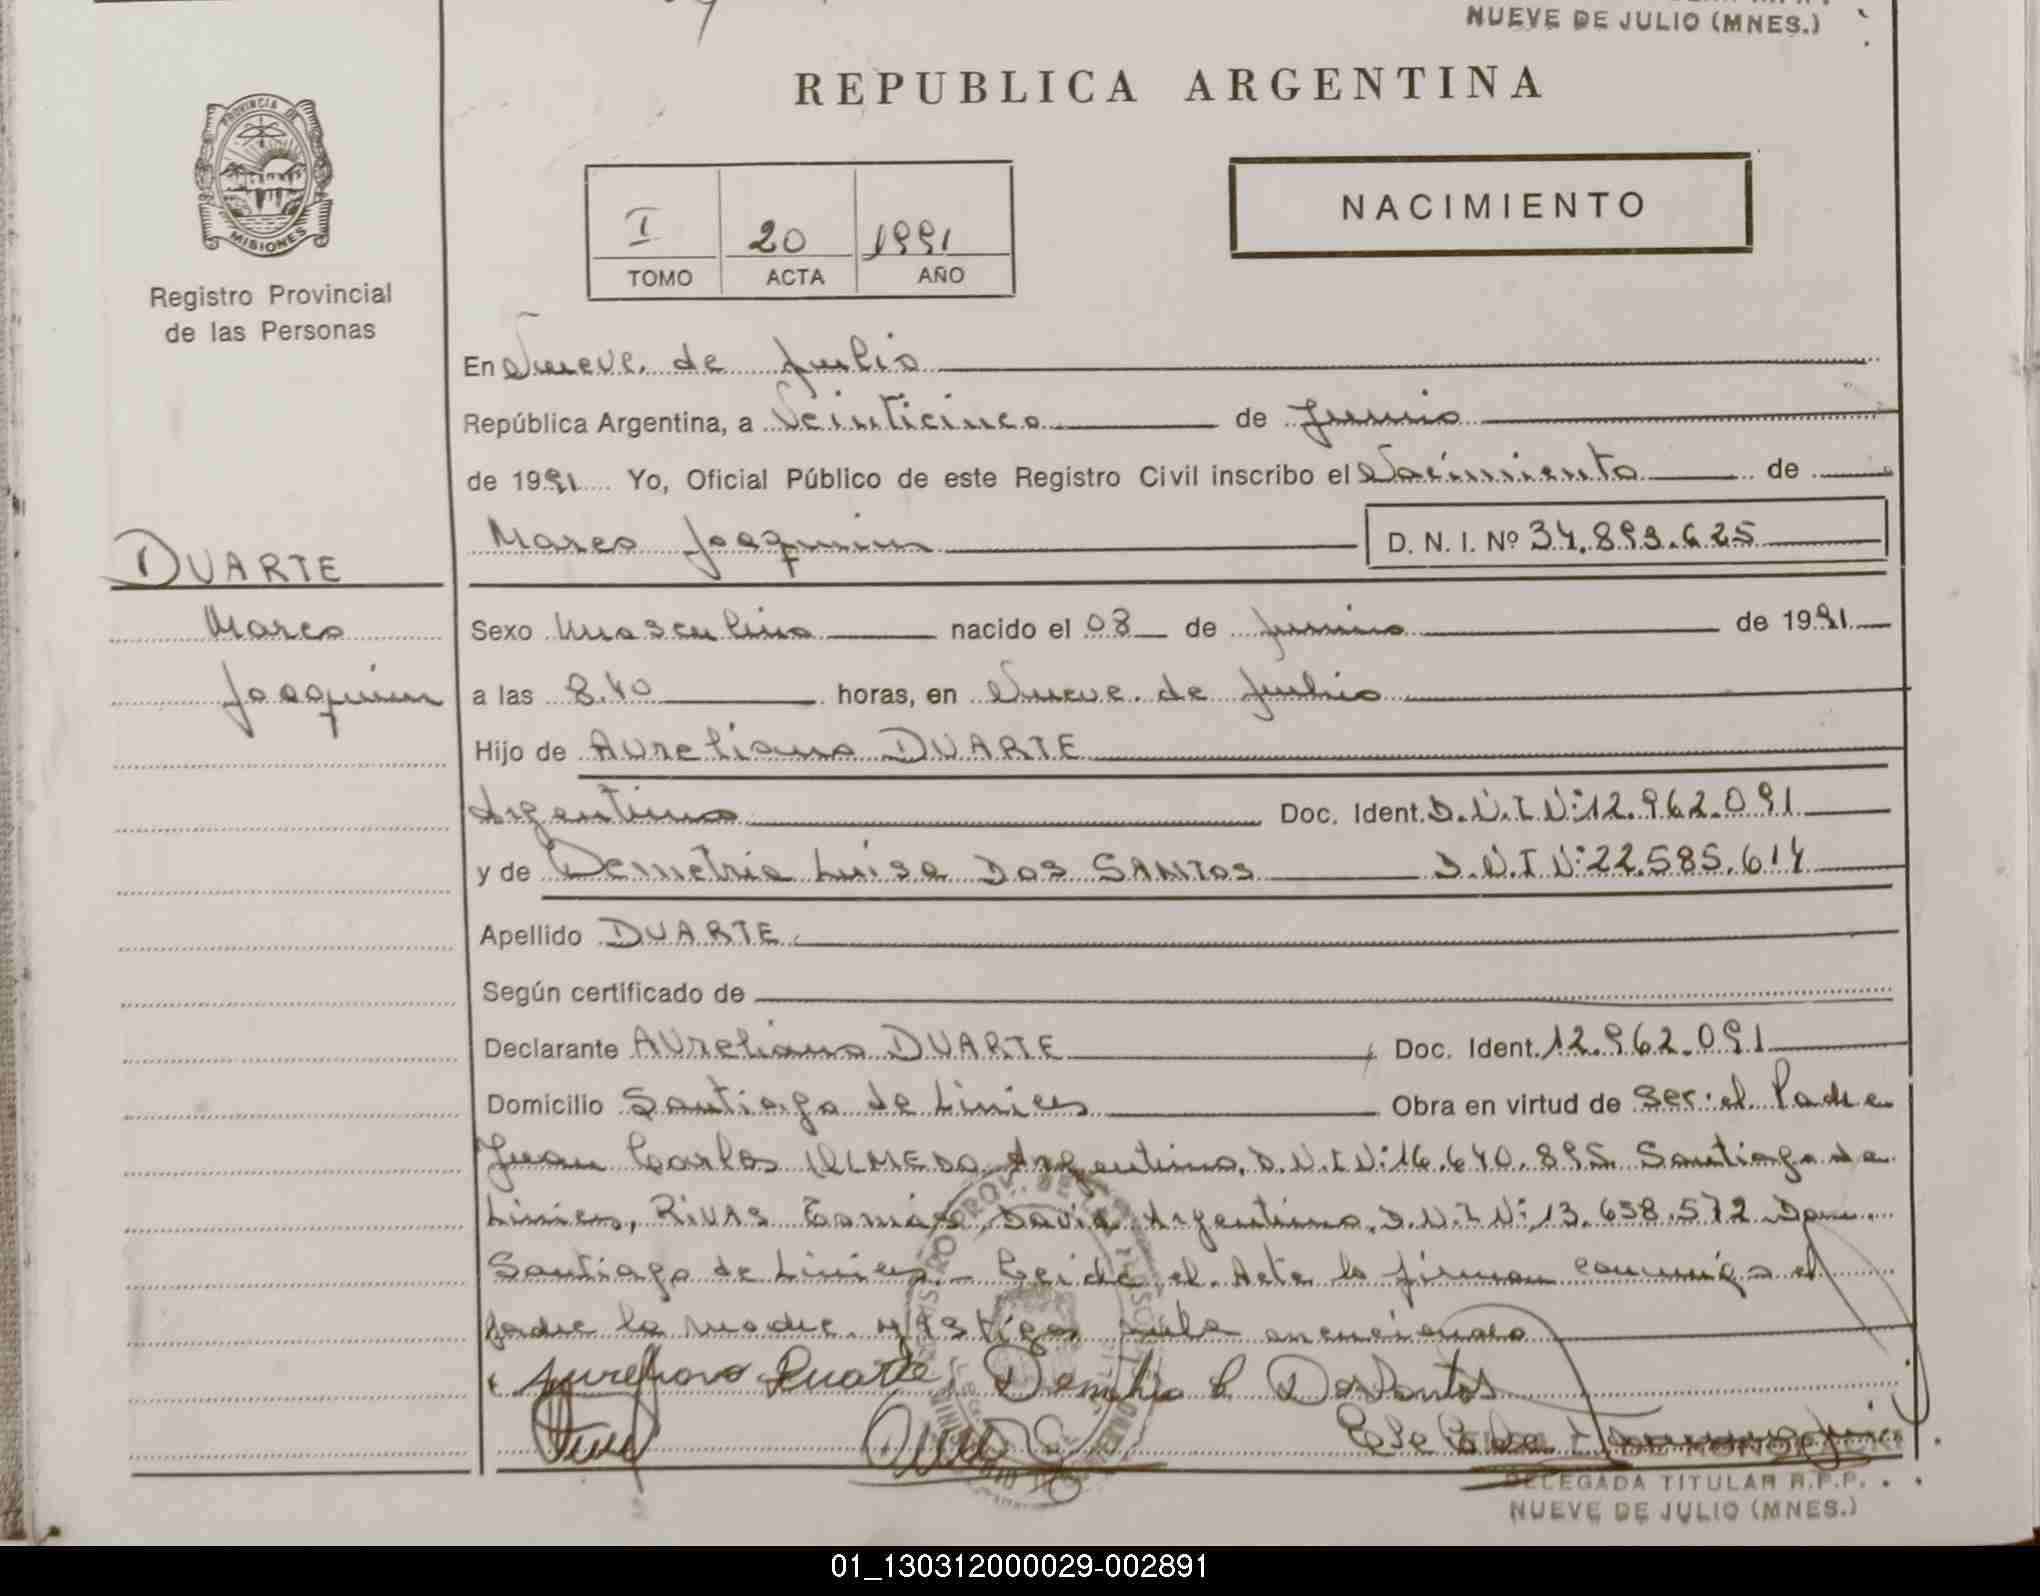 NUEVE DE JULIO (MNES.)
REPUBLICA ARGENTINA
PROVINCIA DE
MISIONES
Registro Provincial
de las Personas
I 20 1991
TOMO ACTA AÑO
NACIMIENTO
En Nueve de Julio
República Argentina, a Veinticinco de Junio
de 1991 Yo, Oficial Público de este Registro Civil inscribo el Nacimiento de
Marco Joaquin D. N. I. Nº 34.893.625
DUARTE
Marco
Joaquin
Sexo Masculino nacido el 08 de Junio de 1991
a las 8.40 horas, en Nueve de Julio
Hijo de Aureliano DUARTE
Argentino Doc. Ident. D.N.I N: 12.962.091
y de Demetria Luisa DOS SANTOS D.N.I N: 22.585.614
Apellido DUARTE
Según certificado de
Declarante Aureliano DUARTE Doc. Ident. 12.962.091
Domicilio Santiago de Liniers Obra en virtud de ser el Padre
Juan Carlos OLMEDO Argentino, D.N.I N: 16.640.895 Santiago de
Liniers, RIVAS Tomás David Argentino, D.N.I N: 13.658.572 Dom.
Santiago de Liniers.- Leida el Acta la firman conmigo el
padre la madre y testigos
Aureliano Duarte Demetria L DosSantos
DELEGADA TITULAR R.P.P.
NUEVE DE JULIO (MNES.)
01_130312000029-002891